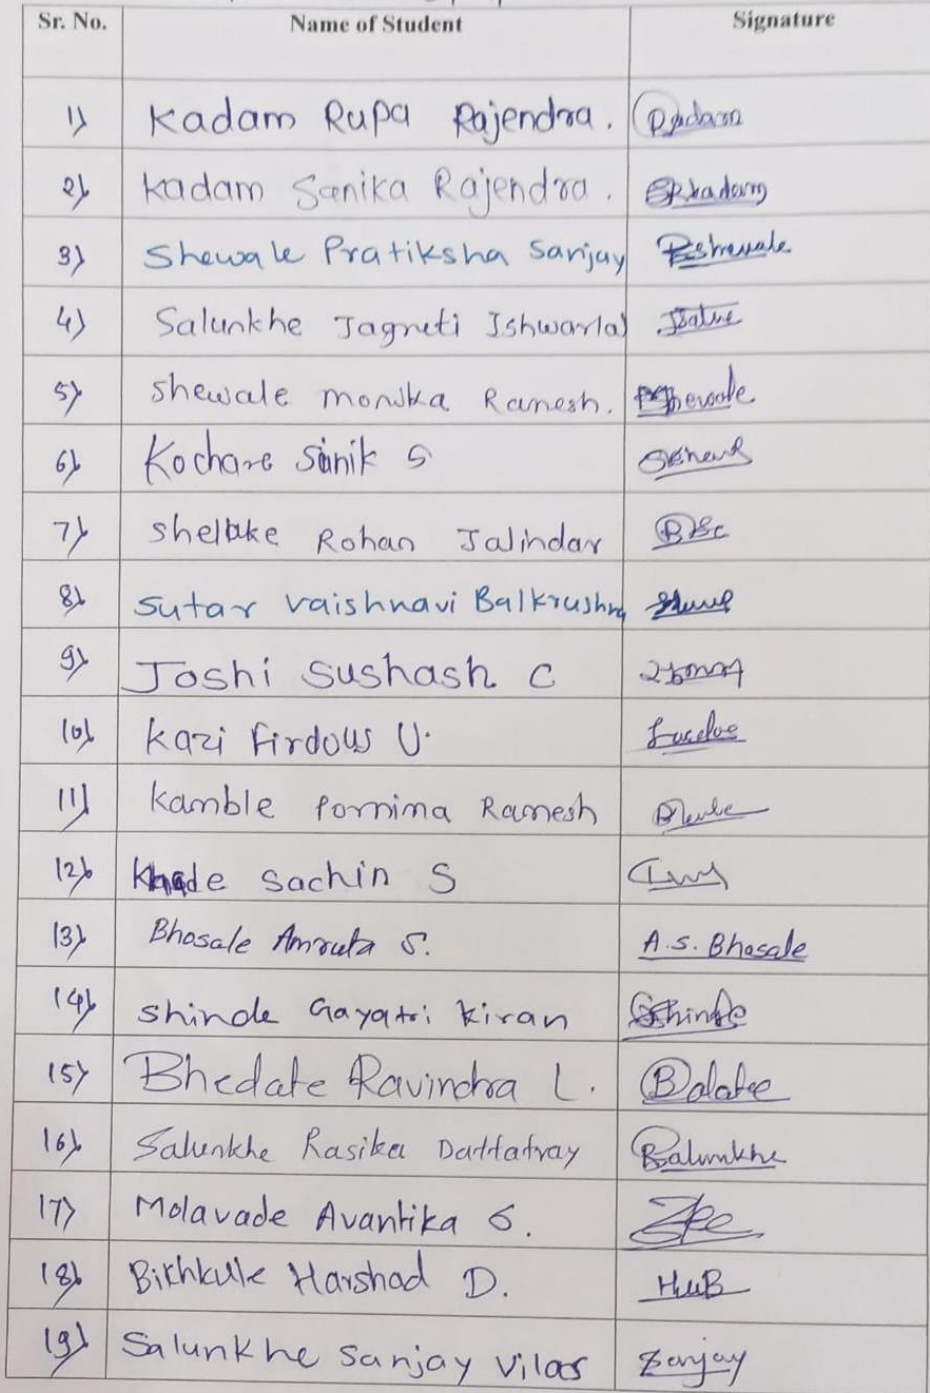 Sr. No. Name of Student Signature
1) Kadam Rupa Rajendra.
2) Kadam Sanika Rajendra. SRKadam
3) Shewale Pratiksha Sanjay PShewale
4) Salunkhe Jagruti Ishwarlal
5) Shewale Monika Ramesh.
6) Kochare Sanik S
7) Shelake Rohan Jalindar
8) Sutar Vaishnavi Balkrushna
9) Joshi Sushash C
10) Kazi Firdous U.
11) Kamble Pornima Ramesh
12) Khade Sachin S
13) Bhosale Amruta S. A.S. Bhosale
14) Shinde Gayatri Kiran GShinde
15) Bhedate Ravindra L.
16) Salunkhe Rasika Dattatray RSalunkhe
17) Molavade Avantika S.
18) Bichkule Harshad D.
19) Salunkhe Sanjay Vilas Sanjay